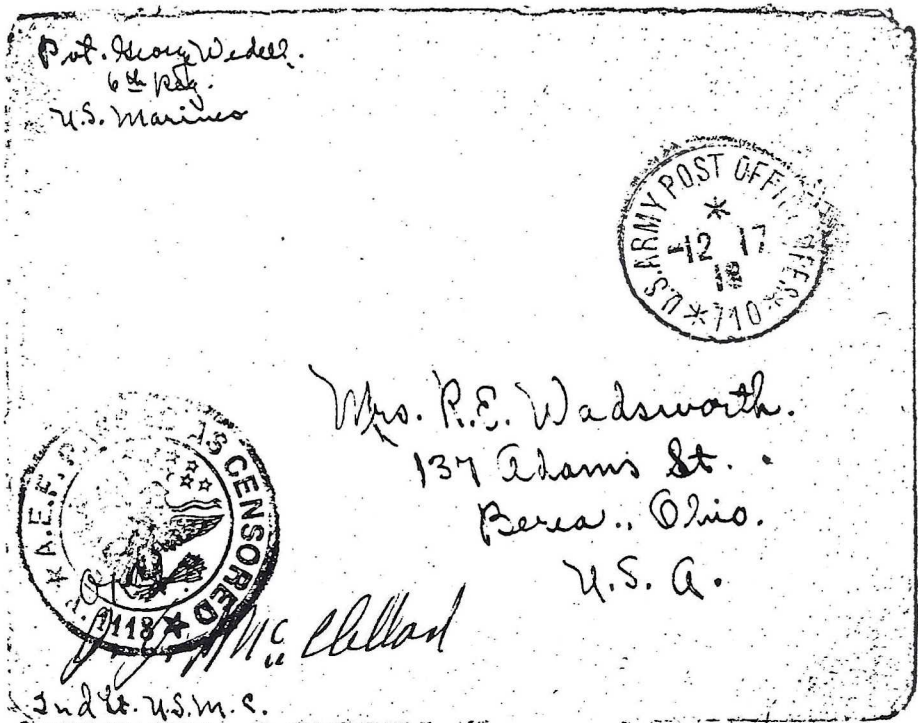 Pvt. George Wedell.
6th Reg.
U.S. Marines
U.S. ARMY POST OFFI
* 
-12 17
18
* 710 *
Mrs. R.E. Wadsworth.
137 Adams St.
Berea., Ohio.
U.S.A.
A.E.F. AS CENSORED
1118
McClelland
2nd Lt. U.S.M.C.